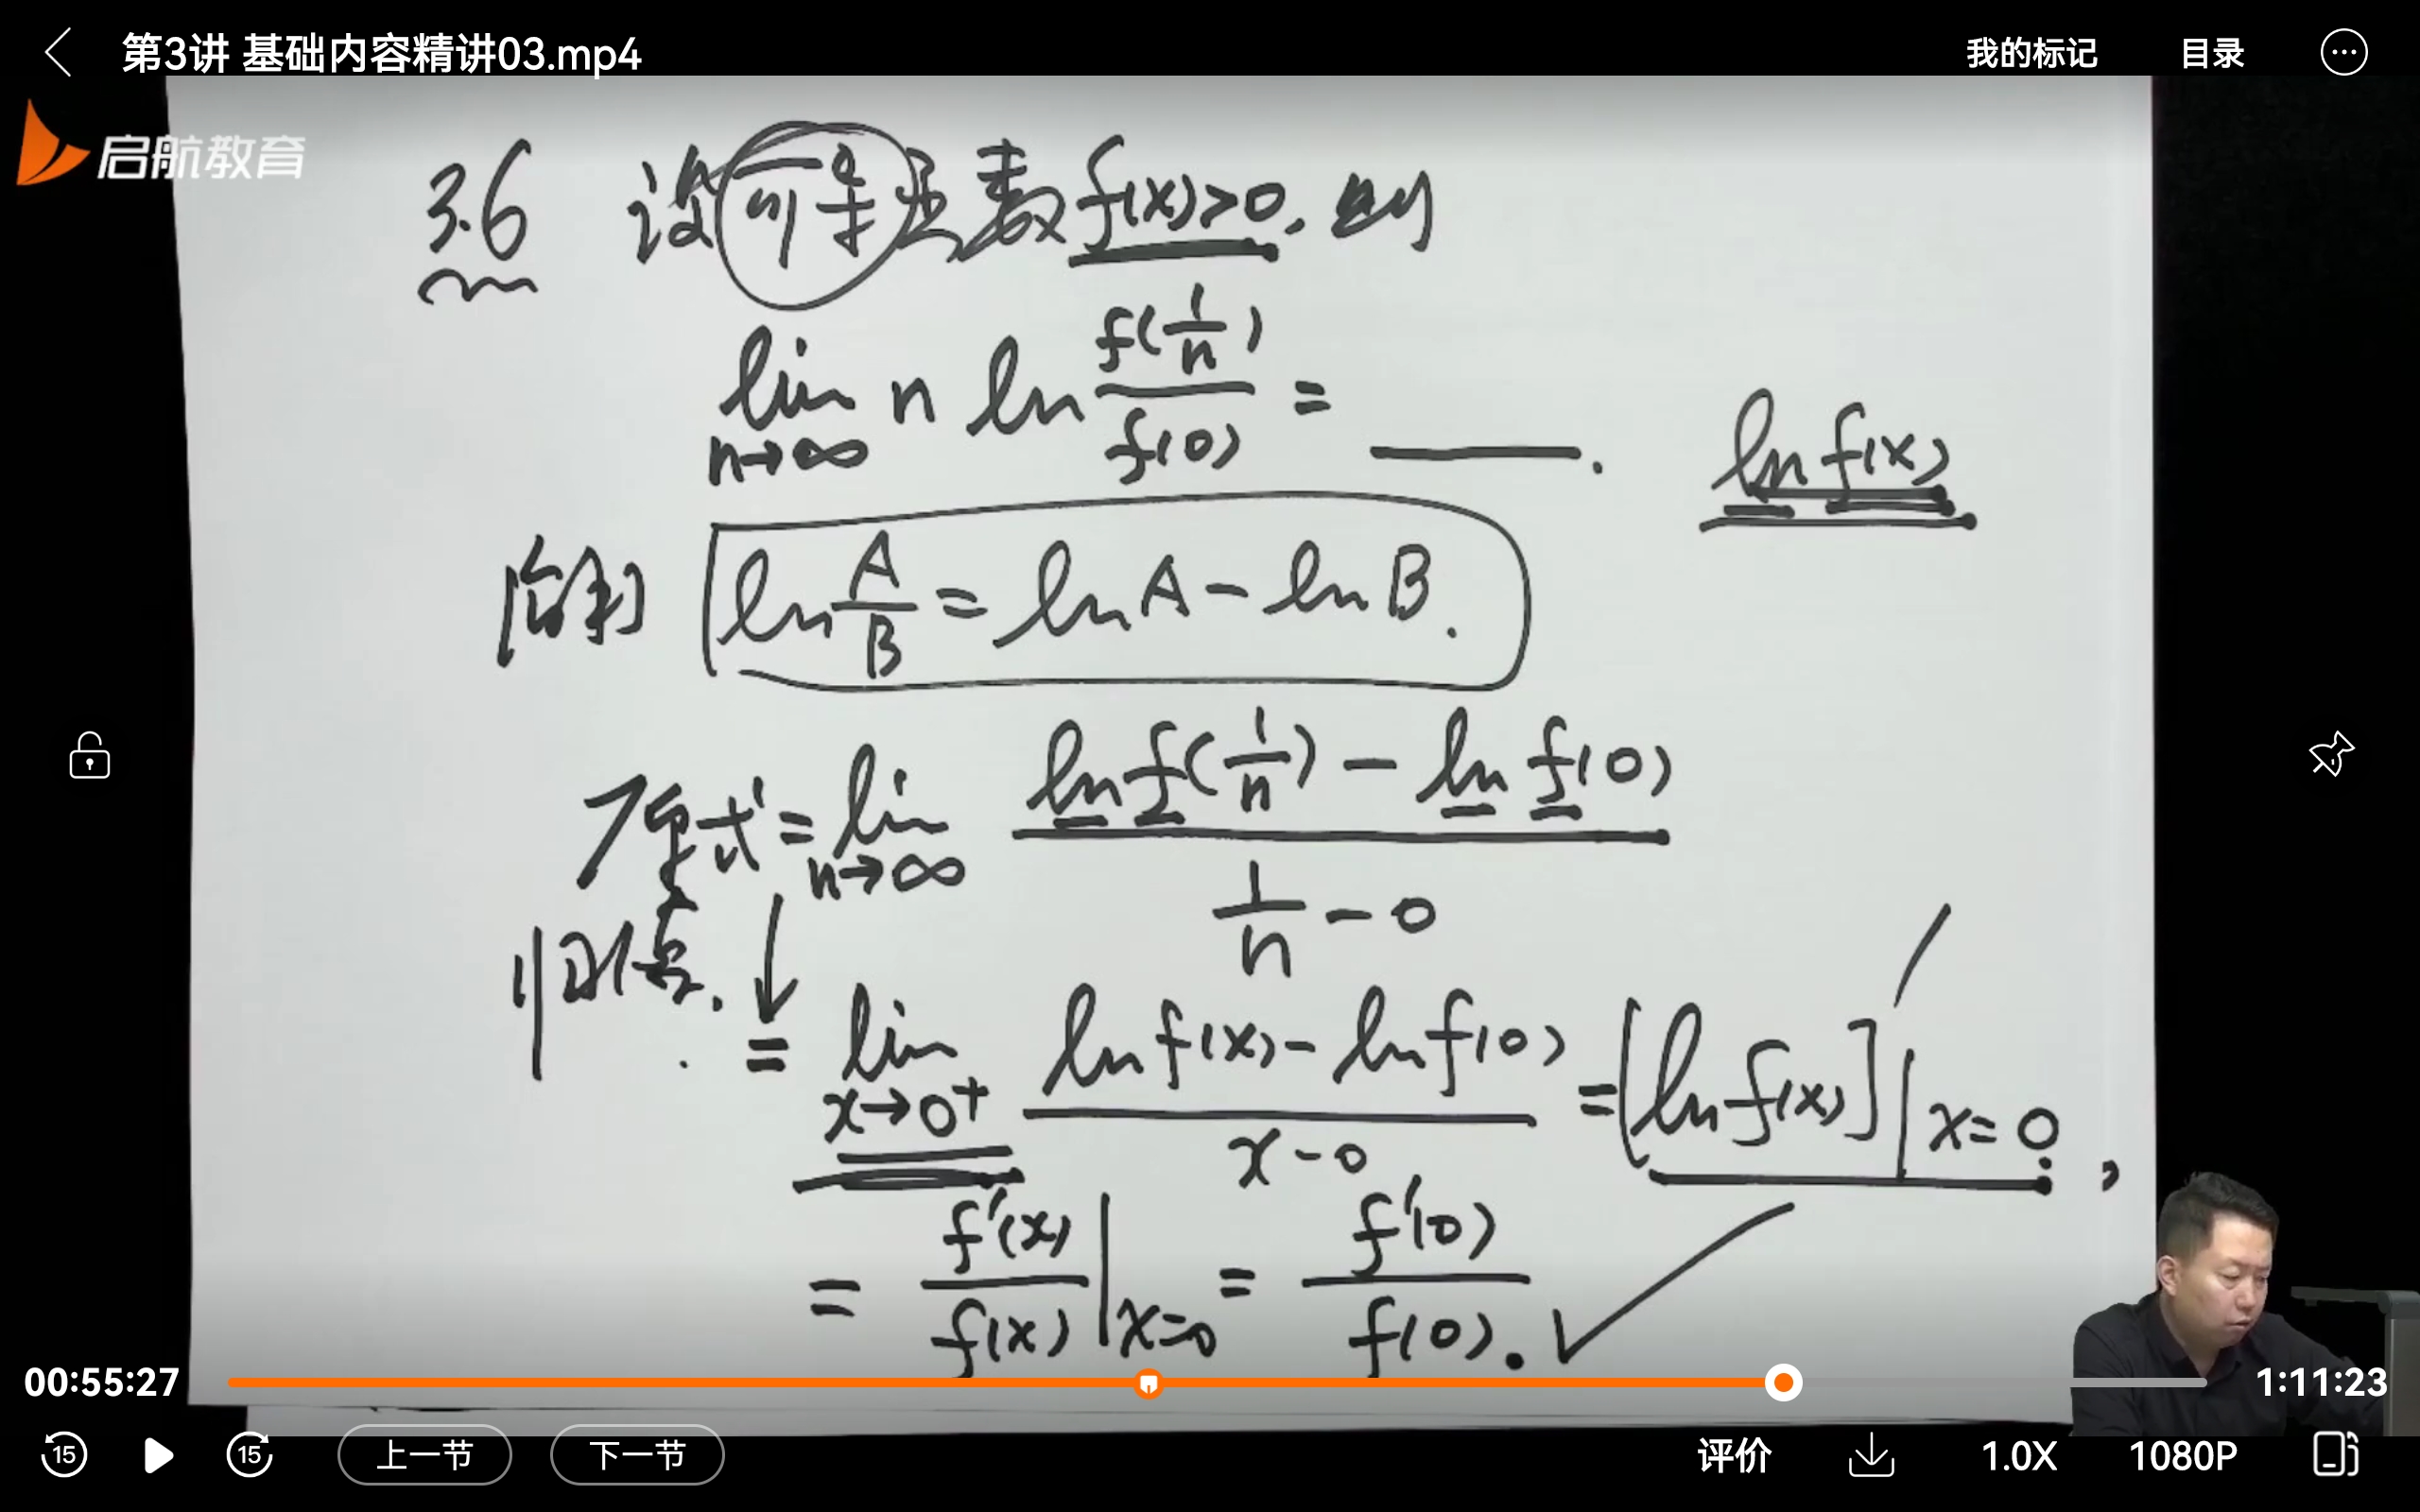 第3讲 基础内容精讲03.mp4
我的标记 目录
启航教育
3.6 设可导函数f(x)>0. 则
lim n→∞ n ln f(1/n)/f(0) = ____.
ln f(x)
ln A/B = ln A - ln B.
原式 = lim n→∞ (ln f(1/n) - ln f(0))/(1/n - 0)
归结
= lim x→0⁺ (ln f(x) - ln f(0))/(x - 0) = [ln f(x)]′|x=0,
= f′(x)/f(x)|x=0 = f′(0)/f(0).
00:55:27
1:11:23
15 15 上一节 下一节 评价 1.0X 1080P